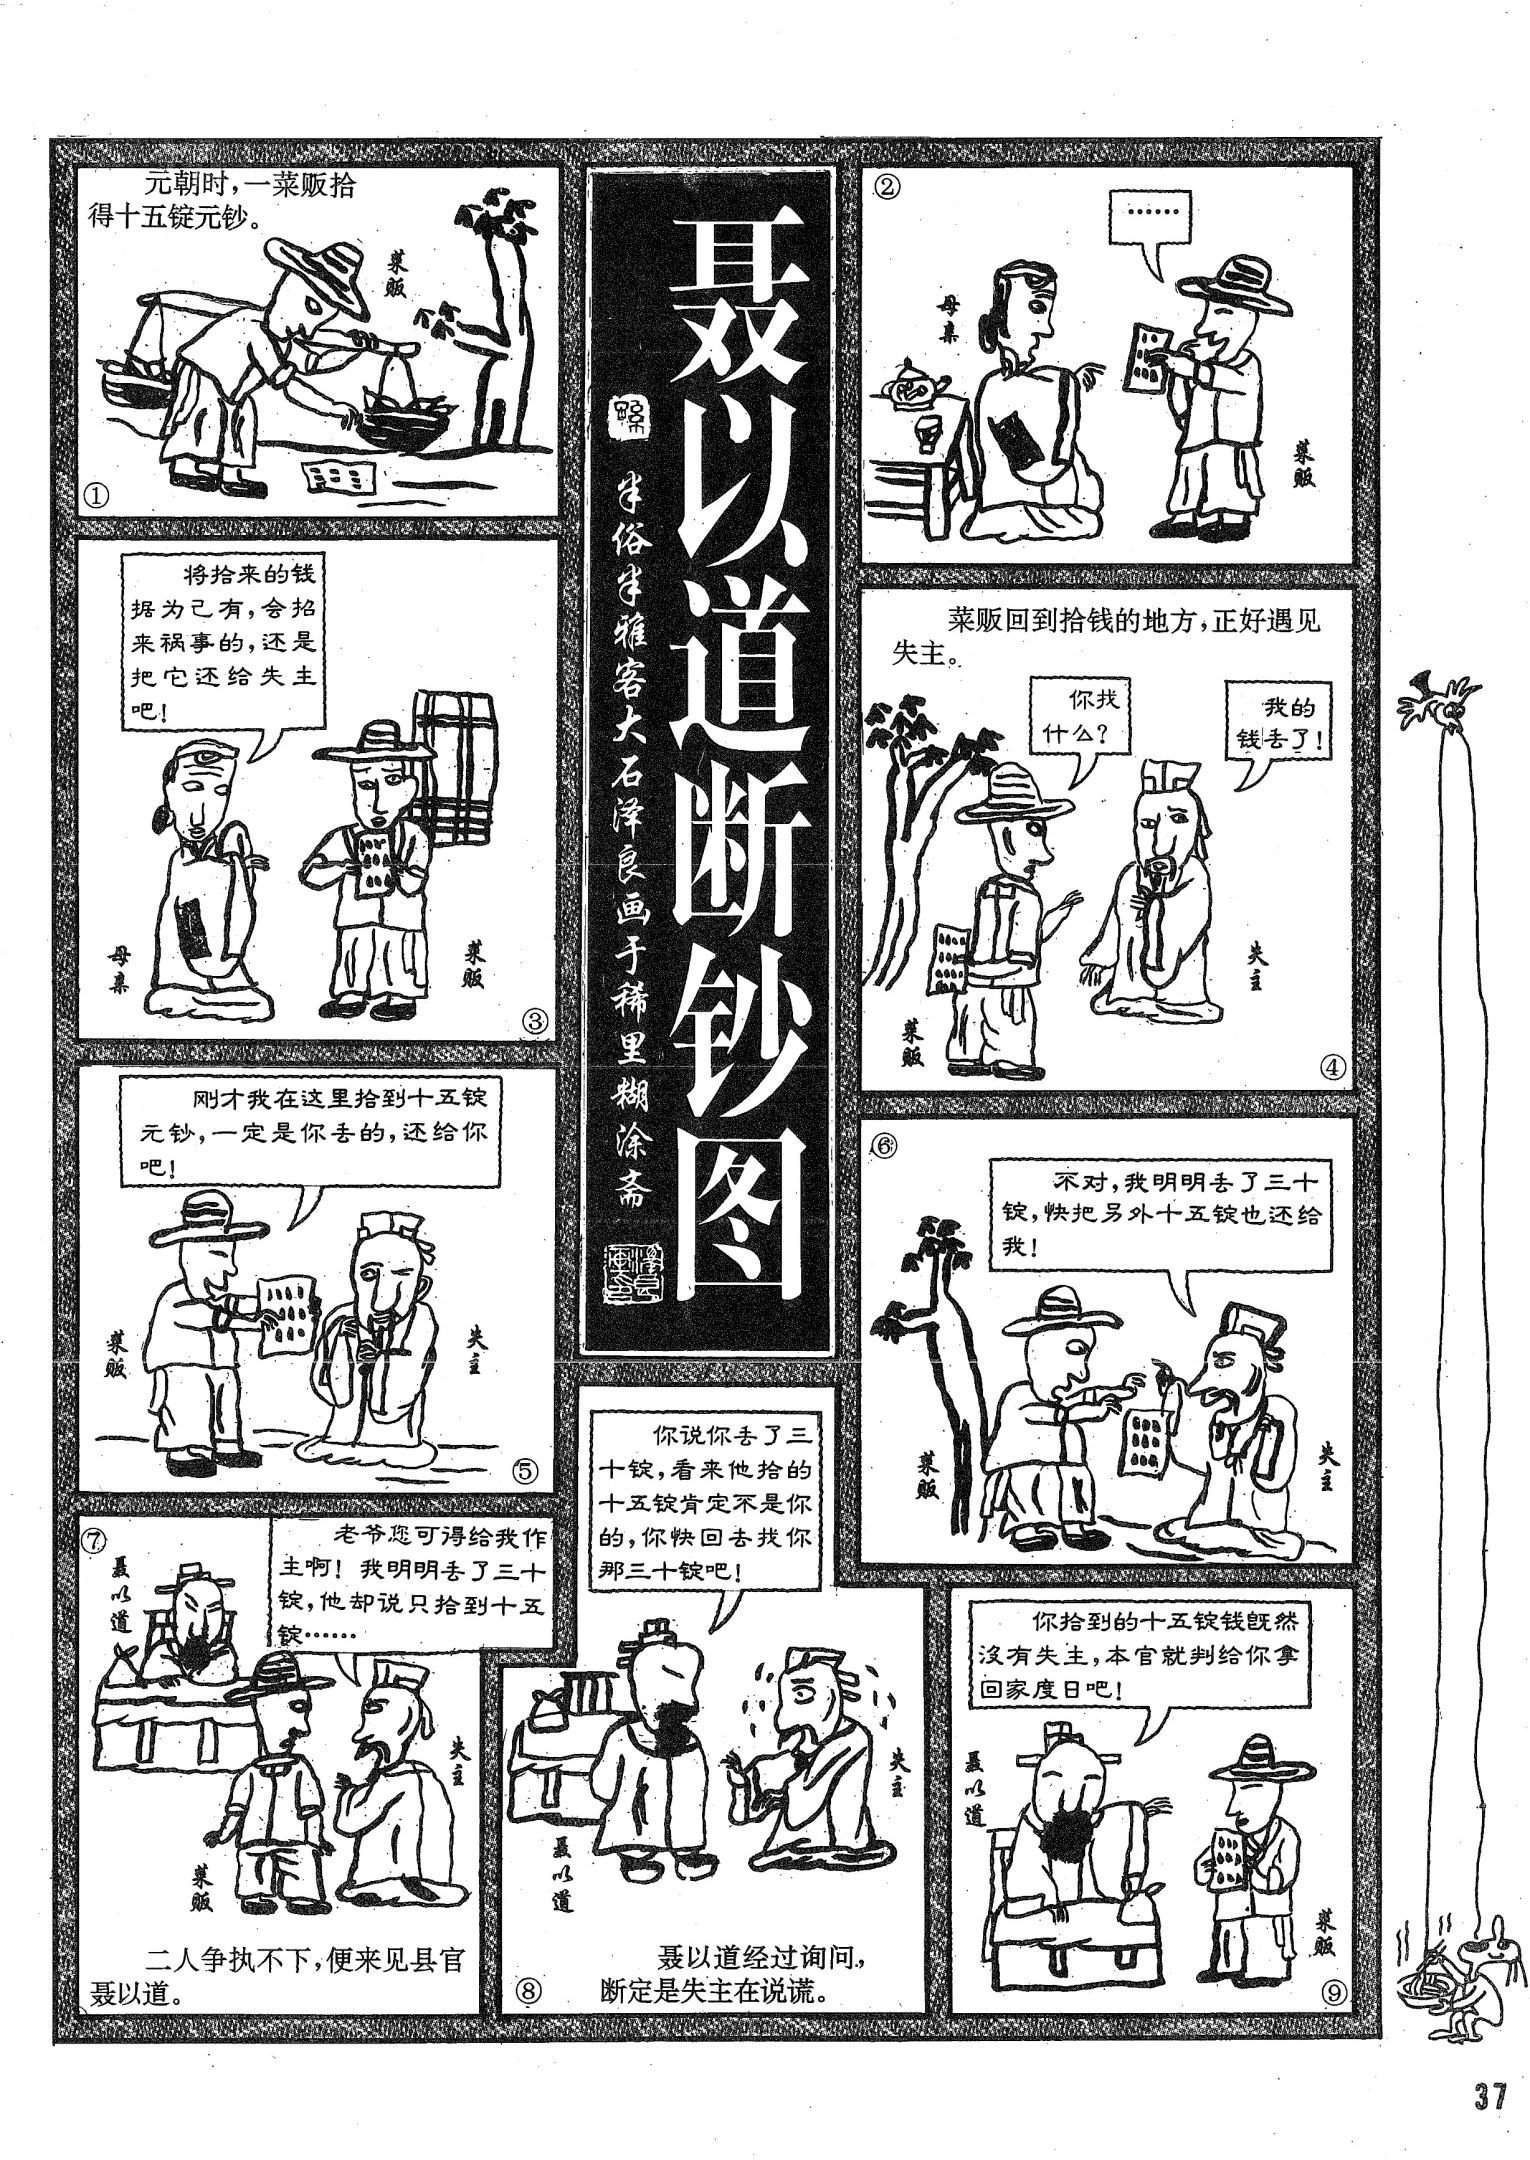 聂以道断钞图
半俗半雅客大石泽良画于稀里糊涂斋
元朝时，一菜贩拾
得十五锭元钞。
菜
贩
①
②
……
母
亲
菜
贩
将拾来的钱
据为己有，会招
来祸事的，还是
把它还给失主
吧！
母
亲
菜
贩
③
菜贩回到拾钱的地方，正好遇见
失主。
你找
什么？
我的
钱丢了！
菜
贩
失
主
④
刚才我在这里拾到十五锭
元钞，一定是你丢的，还给你
吧！
菜
贩
失
主
⑤
⑥
不对，我明明丢了三十
锭，快把另外十五锭也还给
我！
菜
贩
失
主
⑦
聂
以
道
老爷您可得给我作
主啊！我明明丢了三十
锭，他却说只拾到十五
锭……
菜
贩
失
主
二人争执不下，便来见县官
聂以道。
你说你丢了三
十锭，看来他拾的
十五锭肯定不是你
的，你快回去找你
那三十锭吧！
聂
以
道
失
主
聂以道经过询问，
断定是失主在说谎。
⑧
你拾到的十五锭钱既然
没有失主，本官就判给你拿
回家度日吧！
聂
以
道
菜
贩
⑨
37